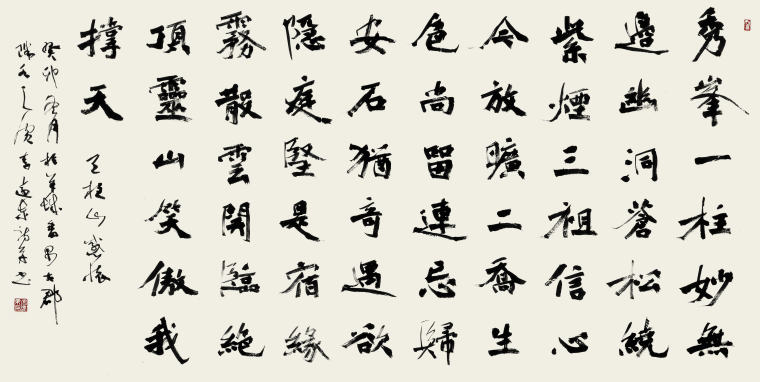 秀峯一柱妙無
邊幽洞蒼松繞
紫煙三祖信心
今放曠二喬生
色尚留連忌歸
安石猶奇遇欲
隱庭堅是宿緣
霧散雲開臨絕
頂靈山笑傲我
撐天 天柱山感懷
癸卯月於羊城番禺古郡